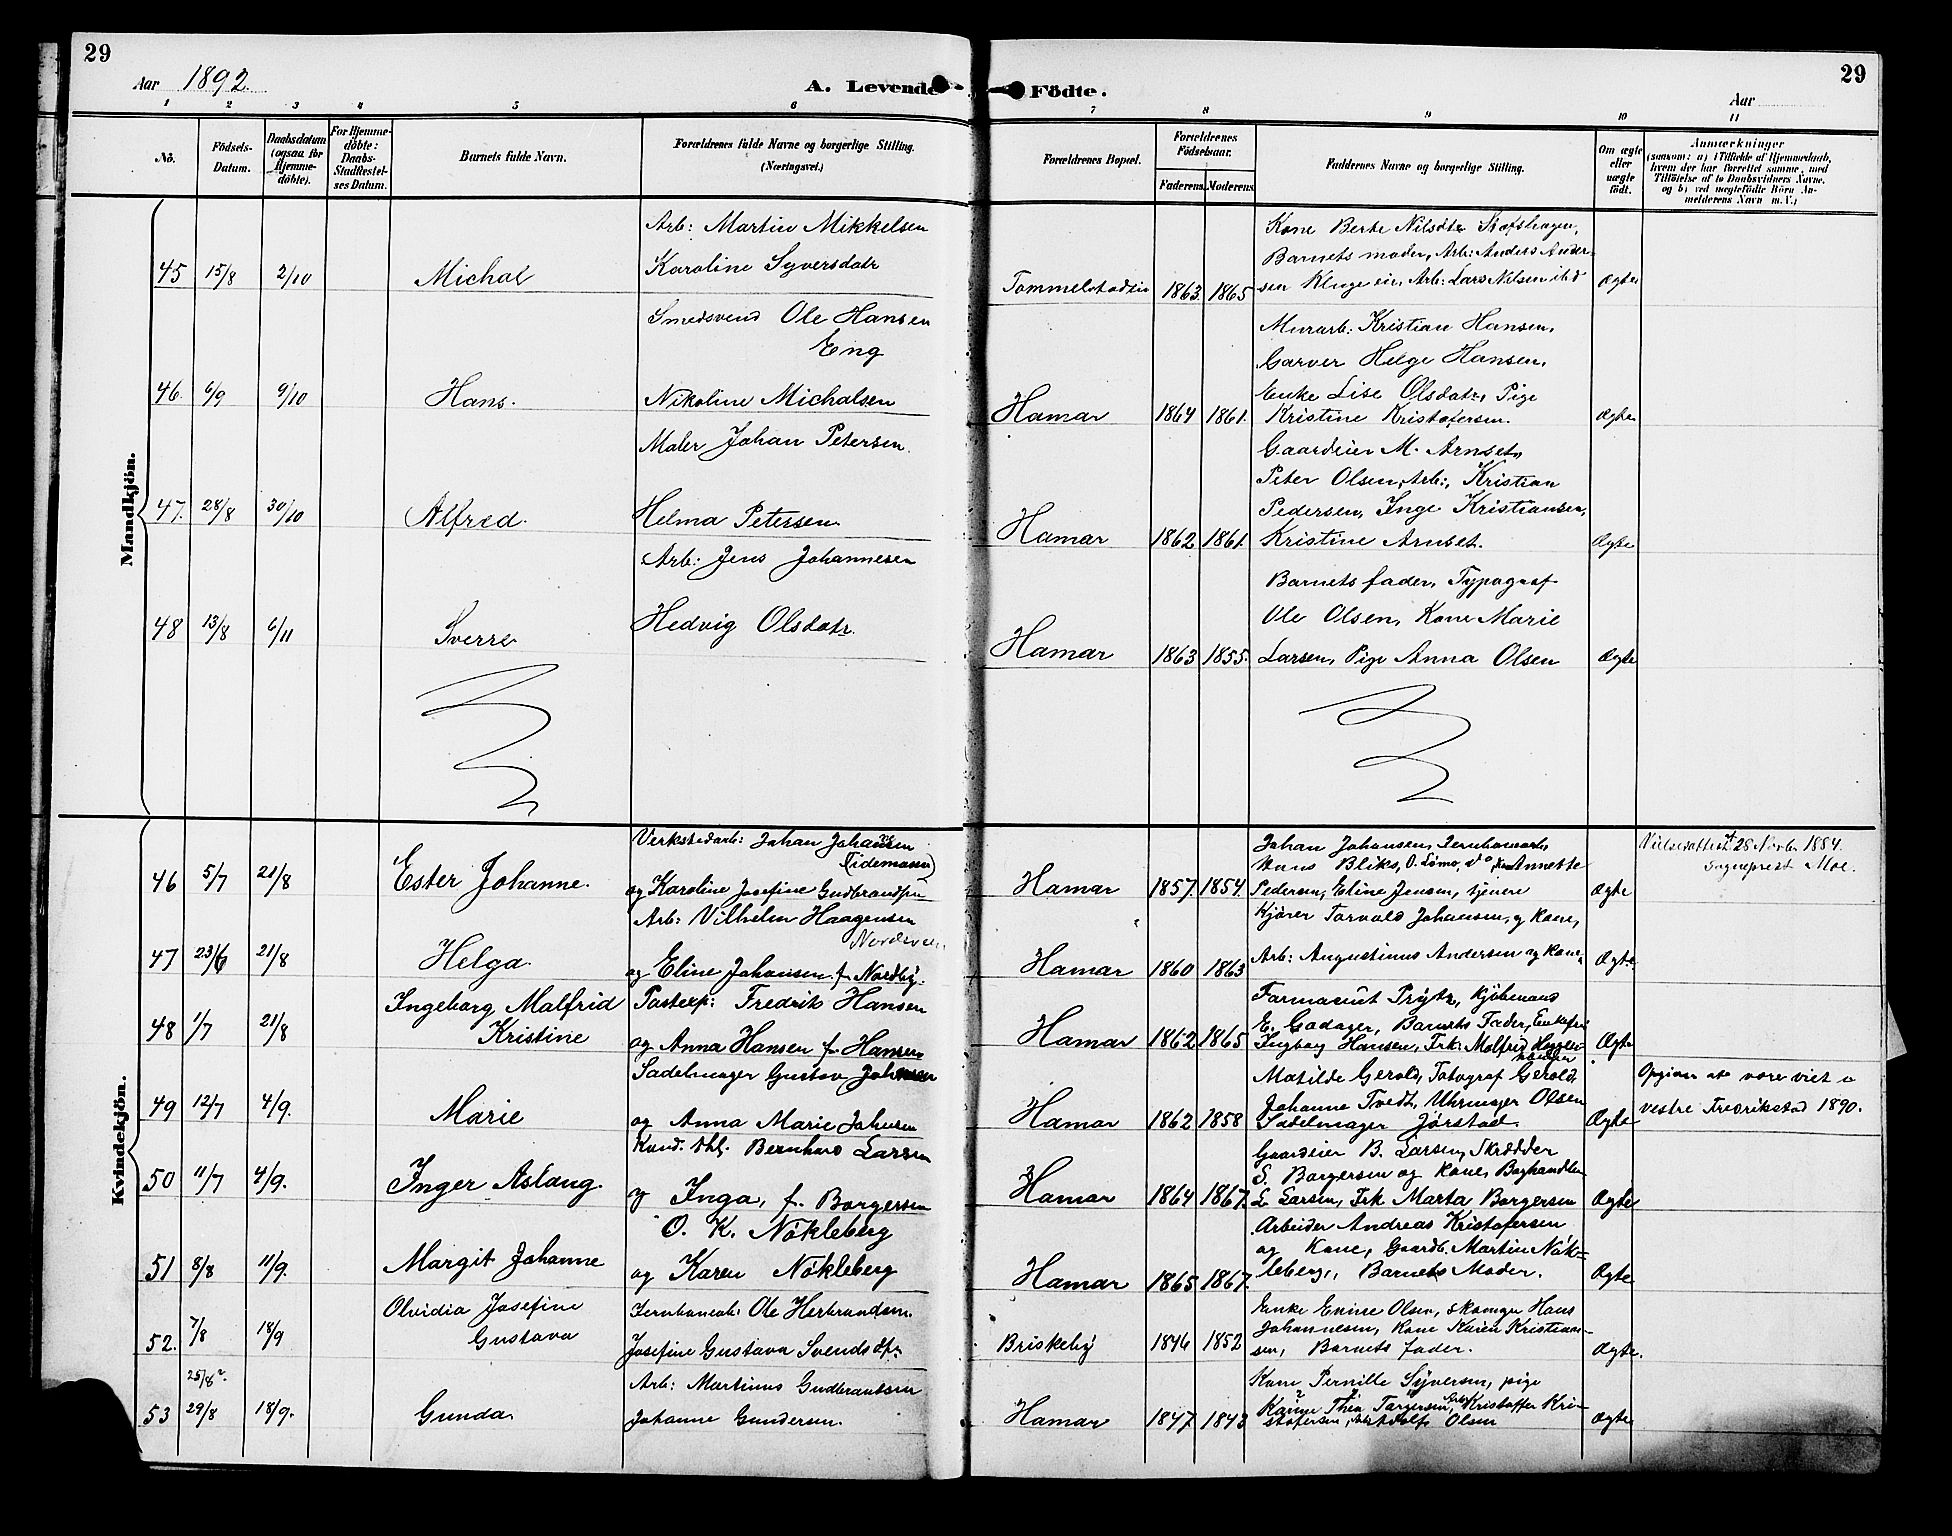 29
Aar 1892.
A. Levende Födte.
29
Aar
1 2 3 4 5 6 7 8 9 10 11
No.
Födsels-Datum.
Daabsdatum (ogsaa for Hjemme-döbte).
For Hjemme-döbte: Daabs-Stadfestel-ses Datum.
Barnets fulde Navn.
Forældrenes fulde Navne og borgerlige Stilling. (Næringsvei.)
Forældrenes Bopæl.
Forældrenes Födselsaar.
Faderens. Moderens.
Faddernes Navne og borgerlige Stilling.
Om ægte eller uægte födt.
Anmærkninger
(saasom: a) i Tilfælde af Hjemmedaab, hvem der har forrettet samme, med Tilföielse af to Daabsvidners Navne, og b) ved uægtefödte Börn An-melderens Navn m. V.)
Mandkjön.
45 15/8 2/10 Michal
Arb: Martin Mikkelsen
Karoline Syversdatr
Tommelstadeie 1863. 1865
Kone Berte Nilsdtr
Barnets moder, Arb: Anders Ander-
sen Klugeeie, Arb: Lars Nilsen ibd
Ægte
46. 6/9 9/10 Hans.
Smedsvend Ole Hansen
Eng
Nikoline Michalsen
Hamar 1864 1861.
Murarb: Kristian Hansen,
Garver Helge Hansen,
Enke Lise Olsdatr, Pige
Kristine Kristofersen.
Ægte
47. 28/8 30/10 Alfred.
Maler Johan Petersen.
Helma Petersen
Hamar 1862 1861
Gaardeier M. Arnset,
Peter Olsen, Arb:, Kristian
Pedersen, Inge Kristiansen,
Kristine Arnset.
Ægte
48 13/8 6/11 Sverre
Arb: Jens Johannesen
Hedvig Olsdatr.
Hamar 1863 1855.
Barnets fader, Typograf
Ole Olsen, Kone Marie
Larsen, Pige Anna Olsen
Ægte
Kvindekjön.
46 5/7 21/8 Ester Johanne.
Verkstedarb: Johan Johansen
(Tidemann)
og Karoline Josefine Gudbrandsen
Hamar 1857. 1854.
Johan Johansen, Jernbanearb,
Hans Bliks, O. Lömo, do, Annette
Pedersen, Eline Jensen, tjenere
Ægte
Vielsesattest 28 Novbr 1884.
Sogneprest Moe.
47 23/6 21/8 Helga.
Arb: Vilhelm Haagensen
og Eline Johansen f. Nordby.
Hamar 1860 1863
Kjörer Torvald Johansen, og kone,
Arb: Augustinus Andersen og kone,
Ægte
48 1/7 21/8 Ingeborg Malfrid
Kristine
Postexp: Fredrik Hansen
og Anna Hansen f. Hansen
Hamar 1862 1865
Farmaceut Prytz, Kjöbmand
E. Gadager, Barnets Fader, Enkefru
Ingborg Hansen, Frk: Malfrid
Ægte
49 12/7 4/9. Marie
Sadelmager Gustav Johnsen
og Anna Marie Johnsen
Hamar 1862 1858
Matilde Gerold, Fotograf Gerold,
Johanne Tvedt, Uhrmager Olsen
Sadelmager Jörstad.
Ægte
Opgiver at være viet i
vestre Fredrikstad 1890.
50 11/7 4/9. Inger Aslaug.
Kand. Bernhard Larsen
og Inga, f. Borgersen
Hamar 1864 1867.
Gaardeier B. Larsen, Skredder
S. Borgersen og Kone, Boghandler
L. Larsen, Frk Marta Borgersen
Ægte
51 8/8 11/9. Margit Johanne
O. K. Nökleberg
og Karen Nökleberg
Hamar 1865 1867.
Arbeider Andreas Kristofersen
og Kone, Gaardb. Martin Nök-
leberg, Barnets Moder.
Ægte
52. 7/8 18/9 Olvidia Josefine
Gustava
Jernbanearb: Ole Herbrandsen.
Josefine Gustava Svendsdtr.
Briskeby 1846 1852
Enke Enine Olsen, skomager Hans
Johannesen, Kone Karen Kristian-
sen, Barnets fader.
Ægte.
25/8?
53 29/8 18/9. Gunda
Arb: Martinus Gudbrandsen
Johanne Gundersen.
Hamar 1847 1843
Kone Pernille Syversen, pige
Thea Torgersen, Kristoffer Kri-
stofersen, Adolf Olsen
Ægte